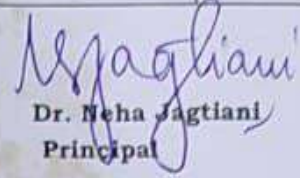 NSJagtiani
Dr. Neha Jagtiani
Principal